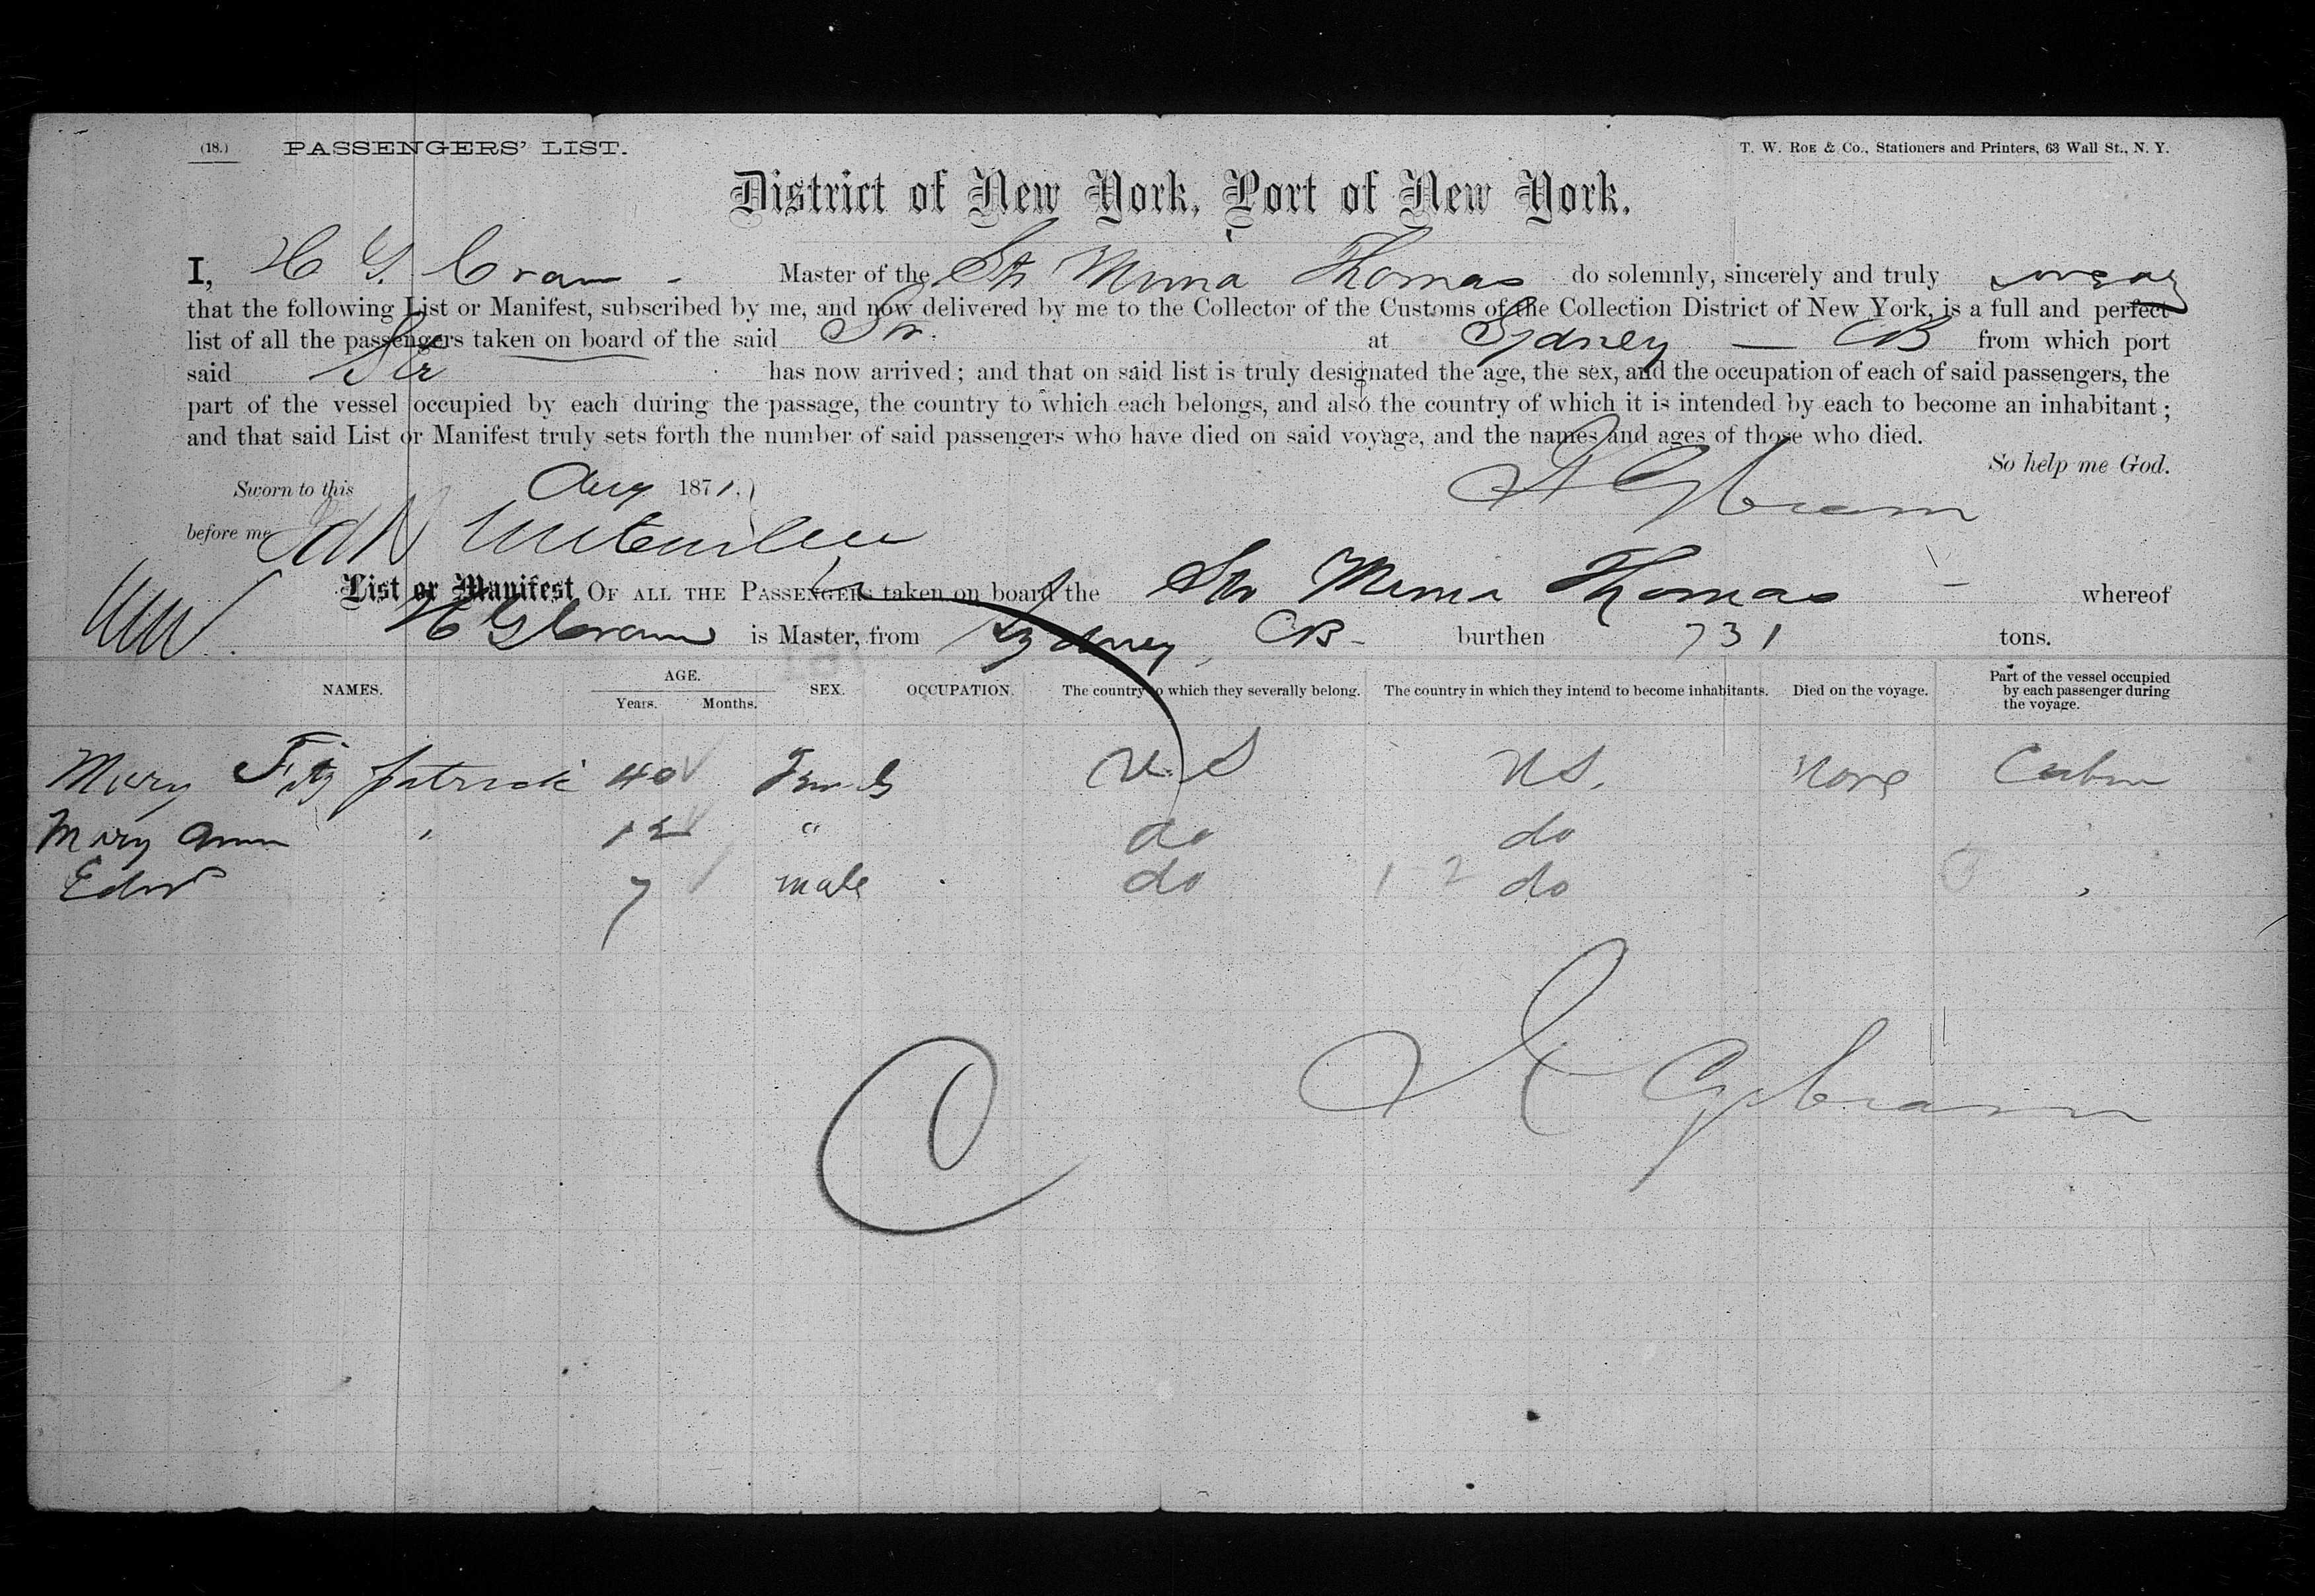 (18.) PASSENGERS' LIST. T. W. ROE & Co., Stationers and Printers, 63 Wall St., N. Y.
District of New York, Port of New York.
I, H G. Cram Master of the Str Mima Thomas do solemnly, sincerely and truly swear
that the following List or Manifest, subscribed by me, and now delivered by me to the Collector of the Customs of the Collection District of New York, is a full and perfect
list of all the passengers taken on board of the said Str. at Sydney — CB from which port
said Str has now arrived; and that on said list is truly designated the age, the sex, and the occupation of each of said passengers, the
part of the vessel occupied by each during the passage, the country to which each belongs, and also the country of which it is intended by each to become an inhabitant;
and that said List or Manifest truly sets forth the number of said passengers who have died on said voyage, and the names and ages of those who died.
So help me God.
Sworn to this Aug 1871. H G Cram
before me
List or Manifest OF ALL THE PASSENGERS taken on board the Str Mima Thomas whereof
H G Cram is Master, from Sydney, CB - burthen 731 tons.
NAMES. AGE. Years. Months. SEX. OCCUPATION. The country to which they severally belong. The country in which they intend to become inhabitants. Died on the voyage. Part of the vessel occupied by each passenger during the voyage.
Mary Fitzpatrick 40 U.S U.S. none Cabin
Mary Ann " 12 " do do "
Edwd " 7 male do 1-2 do "
H G Cram